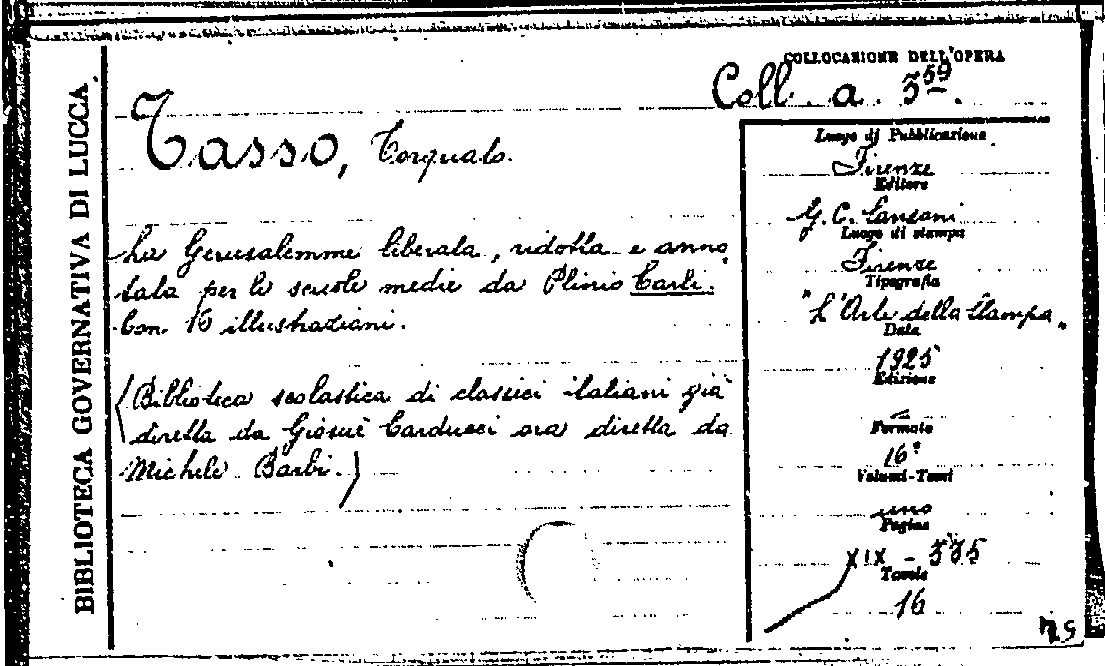 BIBLIOTECA GOVERNATIVA DI LUCCA
COLLOCAZIONE DELL'OPERA
Coll. a. 359.
Tasso, Torquato.
La Gerusalemme liberata, ridotta e anno
tata per le scuole medie da Plinio Carli.
Con 16 illustrazioni.
(Biblioteca scolastica di classici italiani già
diretta da Giosuè Carducci ora diretta da
Michele Barbi.)
Luogo di Pubblicazione
Firenze
Editore
G. C. Sansoni
Luogo di stampa
Firenze
Tipografia
"L'Arte della Stampa"
Data
1925
Edizione
Formato
16°
Volumi-Tomi
uno
Pagine
XIX - 335
Tavole
16